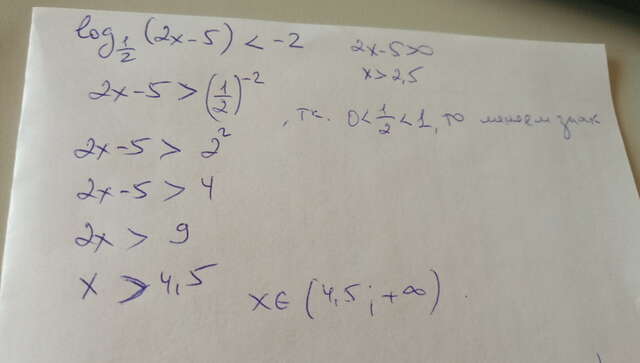 log_{1/2} (2x-5) < -2
2x-5>0
x>2,5
2x-5 > (1/2)^{-2}
, т.к. 0<1/2<1, то меняем знак
2x-5 > 2^2
2x-5 > 4
2x > 9
x > 4,5
x∈(4,5;+∞).